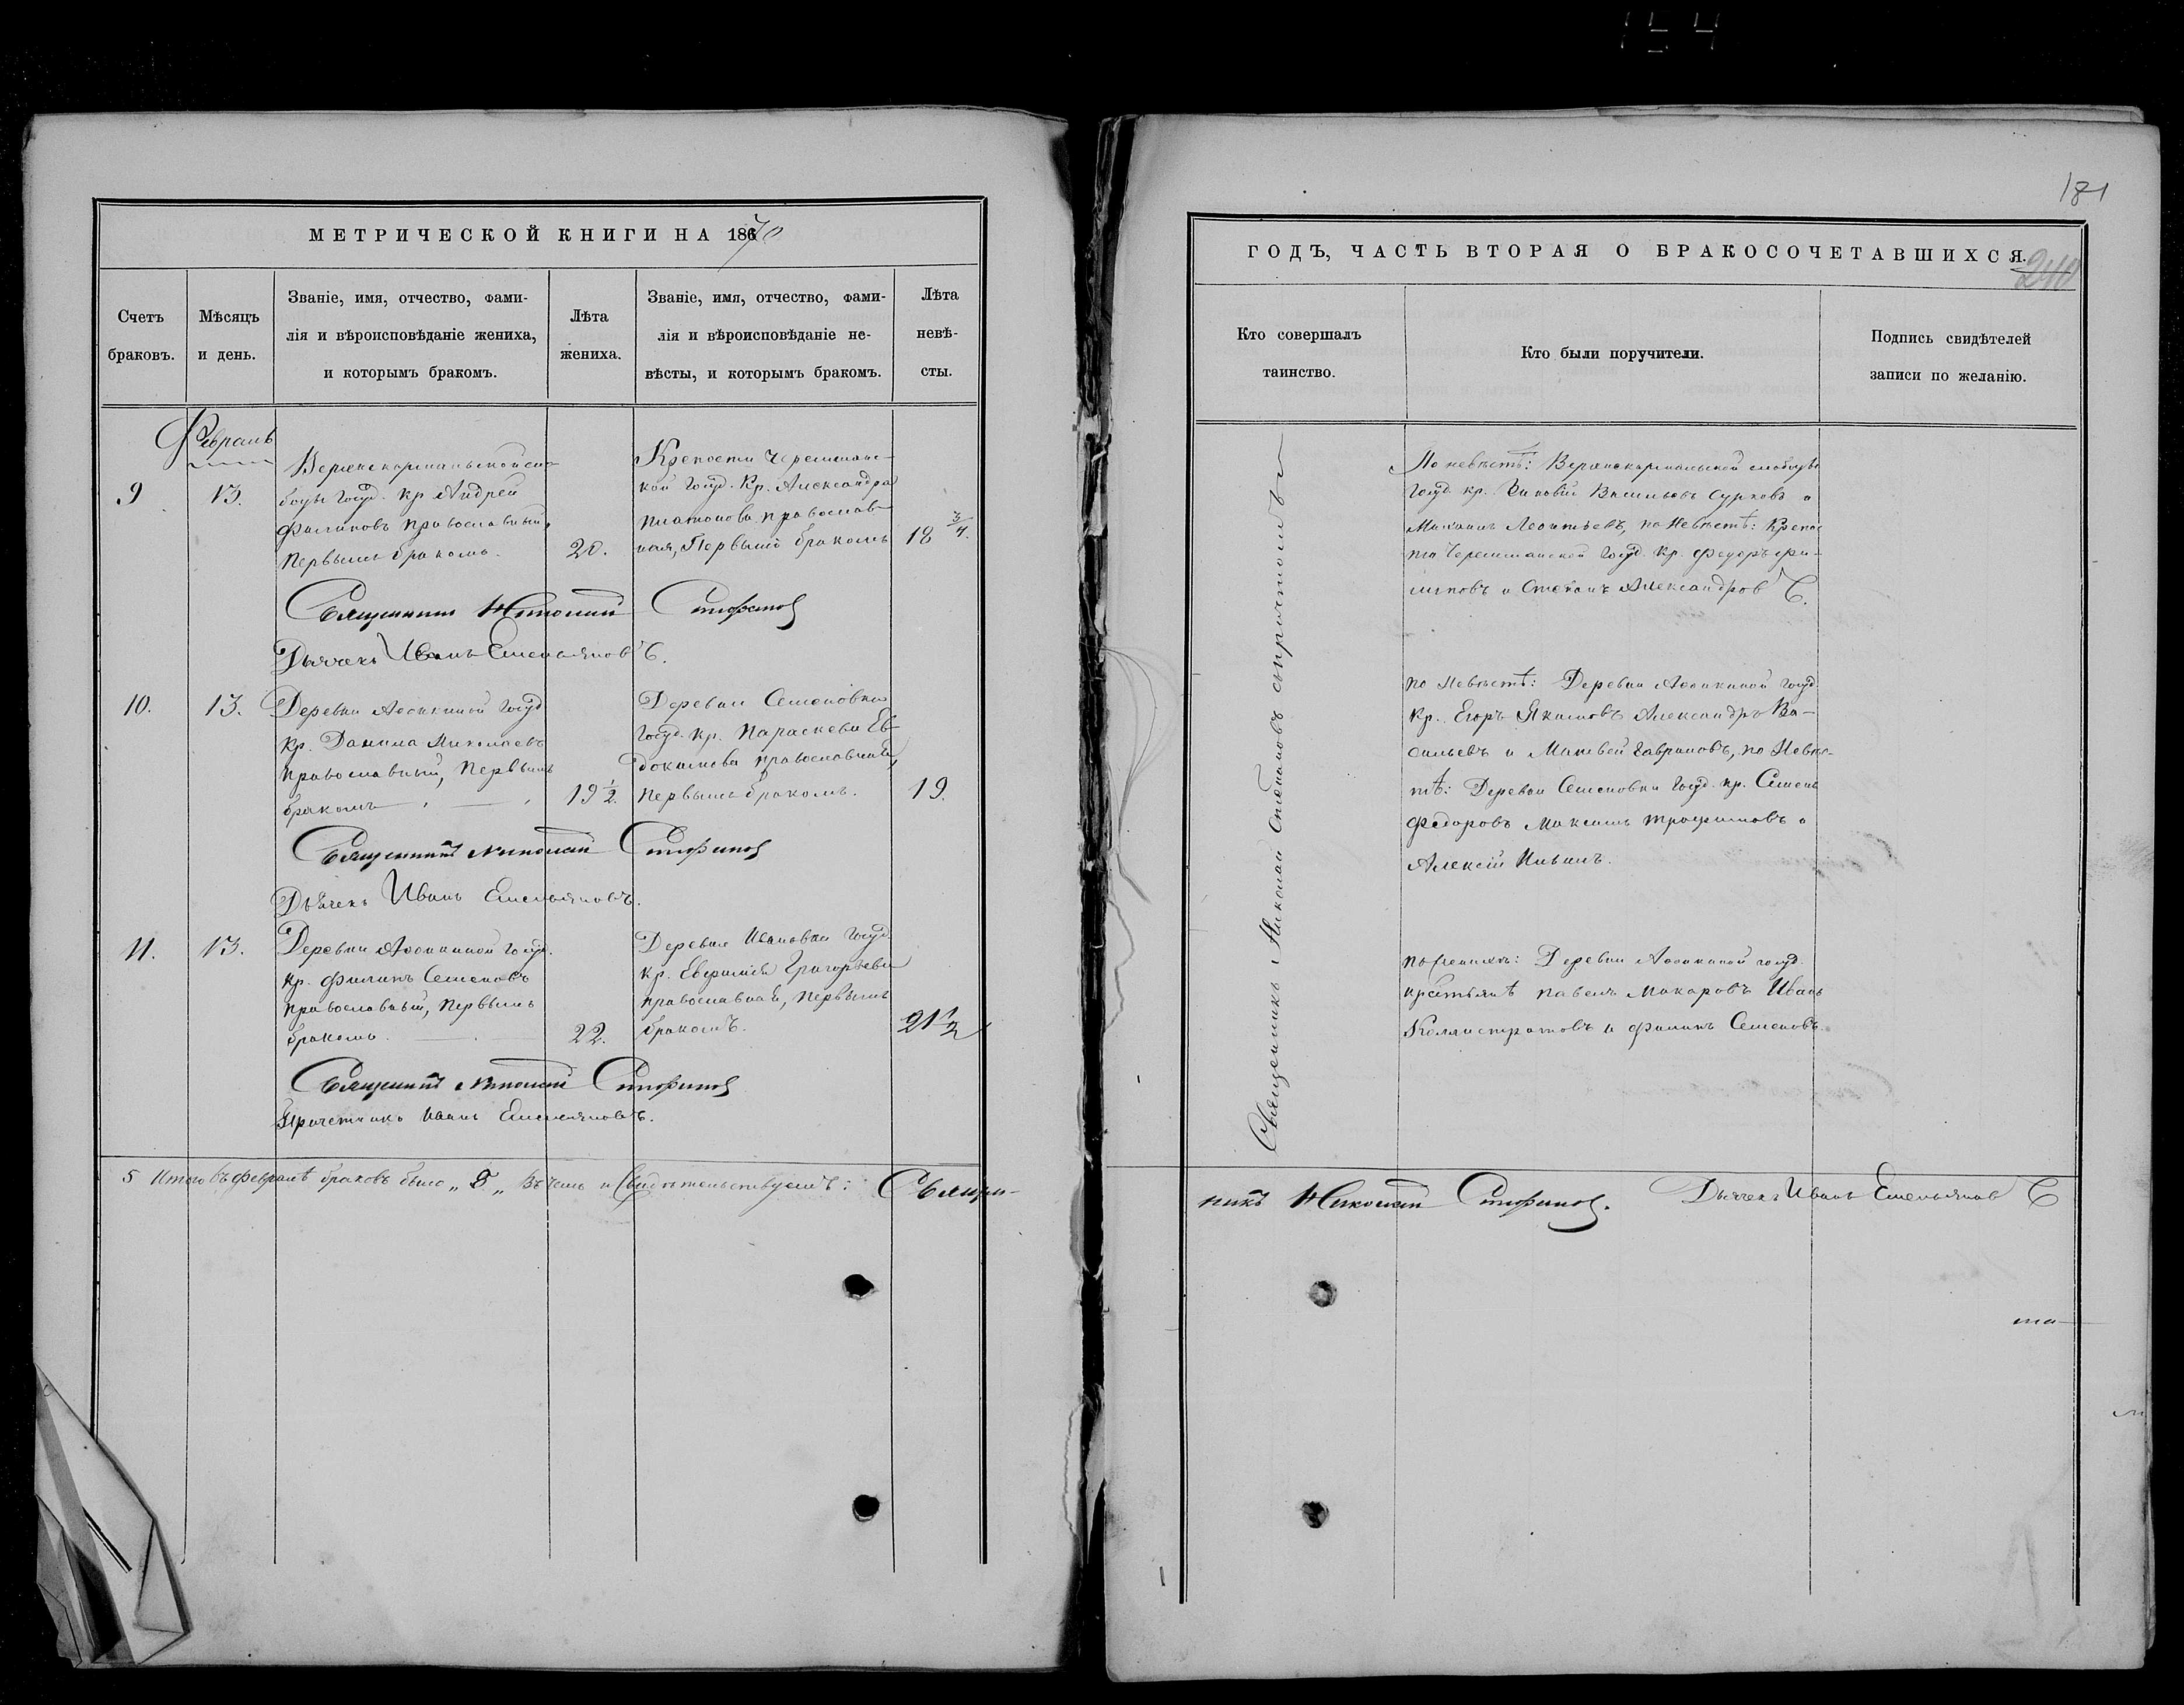 154
МЕТРИЧЕСКОЙ КНИГИ НА 1870
Счетъ
браковъ.
Мѣсяцъ
и день.
Званіе, имя, отчество, фами-
лія и вѣроисповѣданіе жениха,
и которымъ бракомъ.
Лѣта
жениха.
Званіе, имя, отчество, фами-
лія и вѣроисповѣданіе не-
вѣсты, и которымъ бракомъ.
Лѣта
невѣ-
сты.
Февраль
9
13.
боды Госуд. кр Андрей
Филиповъ православный,
Первымъ бракомъ.
20.
Крепости Черемшанс-
кой Госуд. Кр. Александра
Платонова православ-
ная, Первымъ бракомъ
18 3/4.
Священникъ Николай Стефановъ
Дьячекъ Иванъ Емельяновъ.
10.
13.
Деревни Госуд
Кр. Данила Николаевъ
православный, Первымъ
бракомъ
19 1/2.
Деревни Семеновки
Госуд. кр. Параскева Ев-
докимова православная,
Первымъ бракомъ.
19.
Священникъ Николай Стефановъ
Дьячекъ Иванъ Емельяновъ.
11.
13.
Деревни Госуд.
Кр. Филипъ Семеновъ
православный, Первымъ
бракомъ.
22.
Деревни Ивановки Госуд.
кр. Евфимія Григорьева
православная, Первымъ
бракомъ.
21 1/2
Священникъ Николай Стефановъ
Причетникъ Иванъ Емельяновъ.
5 Итого въ Февралѣ браковъ было „5„ Въ чемъ и Свидѣтельствуемъ: Священ-
181
ГОДЪ, ЧАСТЬ ВТОРАЯ О БРАКОСОЧЕТАВШИХСЯ.
240
Кто совершалъ
таинство.
Кто были поручители.
Подпись свидѣтелей
записи по желанію.
Священникъ Николай Стефановъ съ причтомъ
слободы
Госуд. кр. Васильевъ Сурковъ и
Михаилъ Леонтьевъ, по Невѣстѣ: Крепос
ти Черемшанской Госуд. Кр. Федоръ Фи-
липовъ и Степанъ Александровъ.
Деревни Госуд.
Кр. Егоръ Якимовъ Александръ Ва-
сильевъ и Матвей Гавриловъ, по Невѣс-
тѣ: Деревни Семеновки Госуд. кр. Семенъ
Федоровъ Максимъ Трофимовъ и
Алексѣй Ильинъ.
по женихѣ: Деревни госуд.
крестьянѣ Павелъ Макаровъ Иванъ
Каллистратовъ и Филипъ Семеновъ.
никъ Николай Стефановъ. Дьячекъ Иванъ Емельяновъ